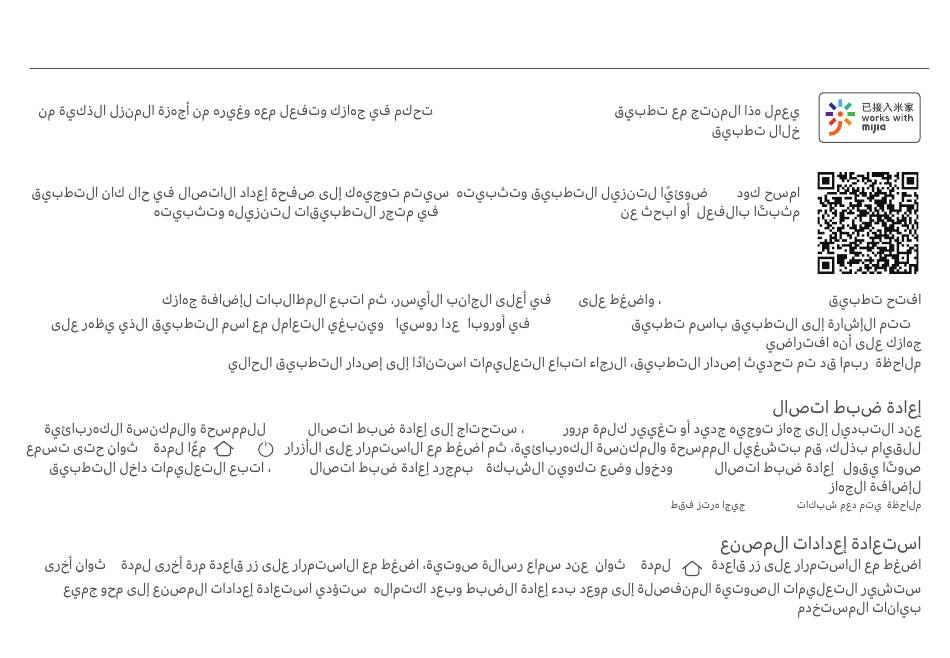 已接入米家
works with
mijia
يعمل هذا المنتج مع تطبيق تحكم في جهازك وتفعل معه وغيره من أجهزة المنزل الذكية من
خلال تطبيق
امسح كود ضوئيًا لتنزيل التطبيق وتثبيته سيتم توجيهك إلى صفحة إعداد الاتصال في حال كان التطبيق
مثبتًا بالفعل أو ابحث عن في متجر التطبيقات لتنزيله وتثبيته
افتح تطبيق ، واضغط على في أعلى الجانب الأيسر، ثم اتبع المطالبات لإضافة جهازك
تتم الإشارة إلى التطبيق باسم تطبيق في أوروبا عدا روسيا وينبغي التعامل مع اسم التطبيق الذي يظهر على
جهازك على أنه افتراضي
ملاحظة ربما قد تم تحديث إصدار التطبيق، الرجاء اتباع التعليمات استنادًا إلى إصدار التطبيق الحالي
إعادة ضبط اتصال
عند التبديل إلى جهاز توجيه جديد أو تغيير كلمة مرور ، ستحتاج إلى إعادة ضبط اتصال للممسحة والمكنسة الكهربائية
للقيام بذلك، قم بتشغيل الممسحة والمكنسة الكهربائية، ثم اضغط مع الاستمرار على الأزرار معًا لمدة ثوان حتى تسمع
صوتًا يقول إعادة ضبط اتصال ودخول وضع تكوين الشبكة بمجرد إعادة ضبط اتصال ، اتبع التعليمات داخل التطبيق
لإضافة الجهاز
ملاحظة يتم دعم شبكات جيجا هرتز فقط
استعادة إعدادات المصنع
اضغط مع الاستمرار على زر قاعدة لمدة ثوان عند سماع رسالة صوتية، اضغط مع الاستمرار على زر قاعدة مرة أخرى لمدة ثوان أخرى
ستشير التعليمات الصوتية المنفصلة إلى موعد بدء إعادة الضبط وبعد اكتماله ستؤدي استعادة إعدادات المصنع إلى محو جميع
بيانات المستخدم